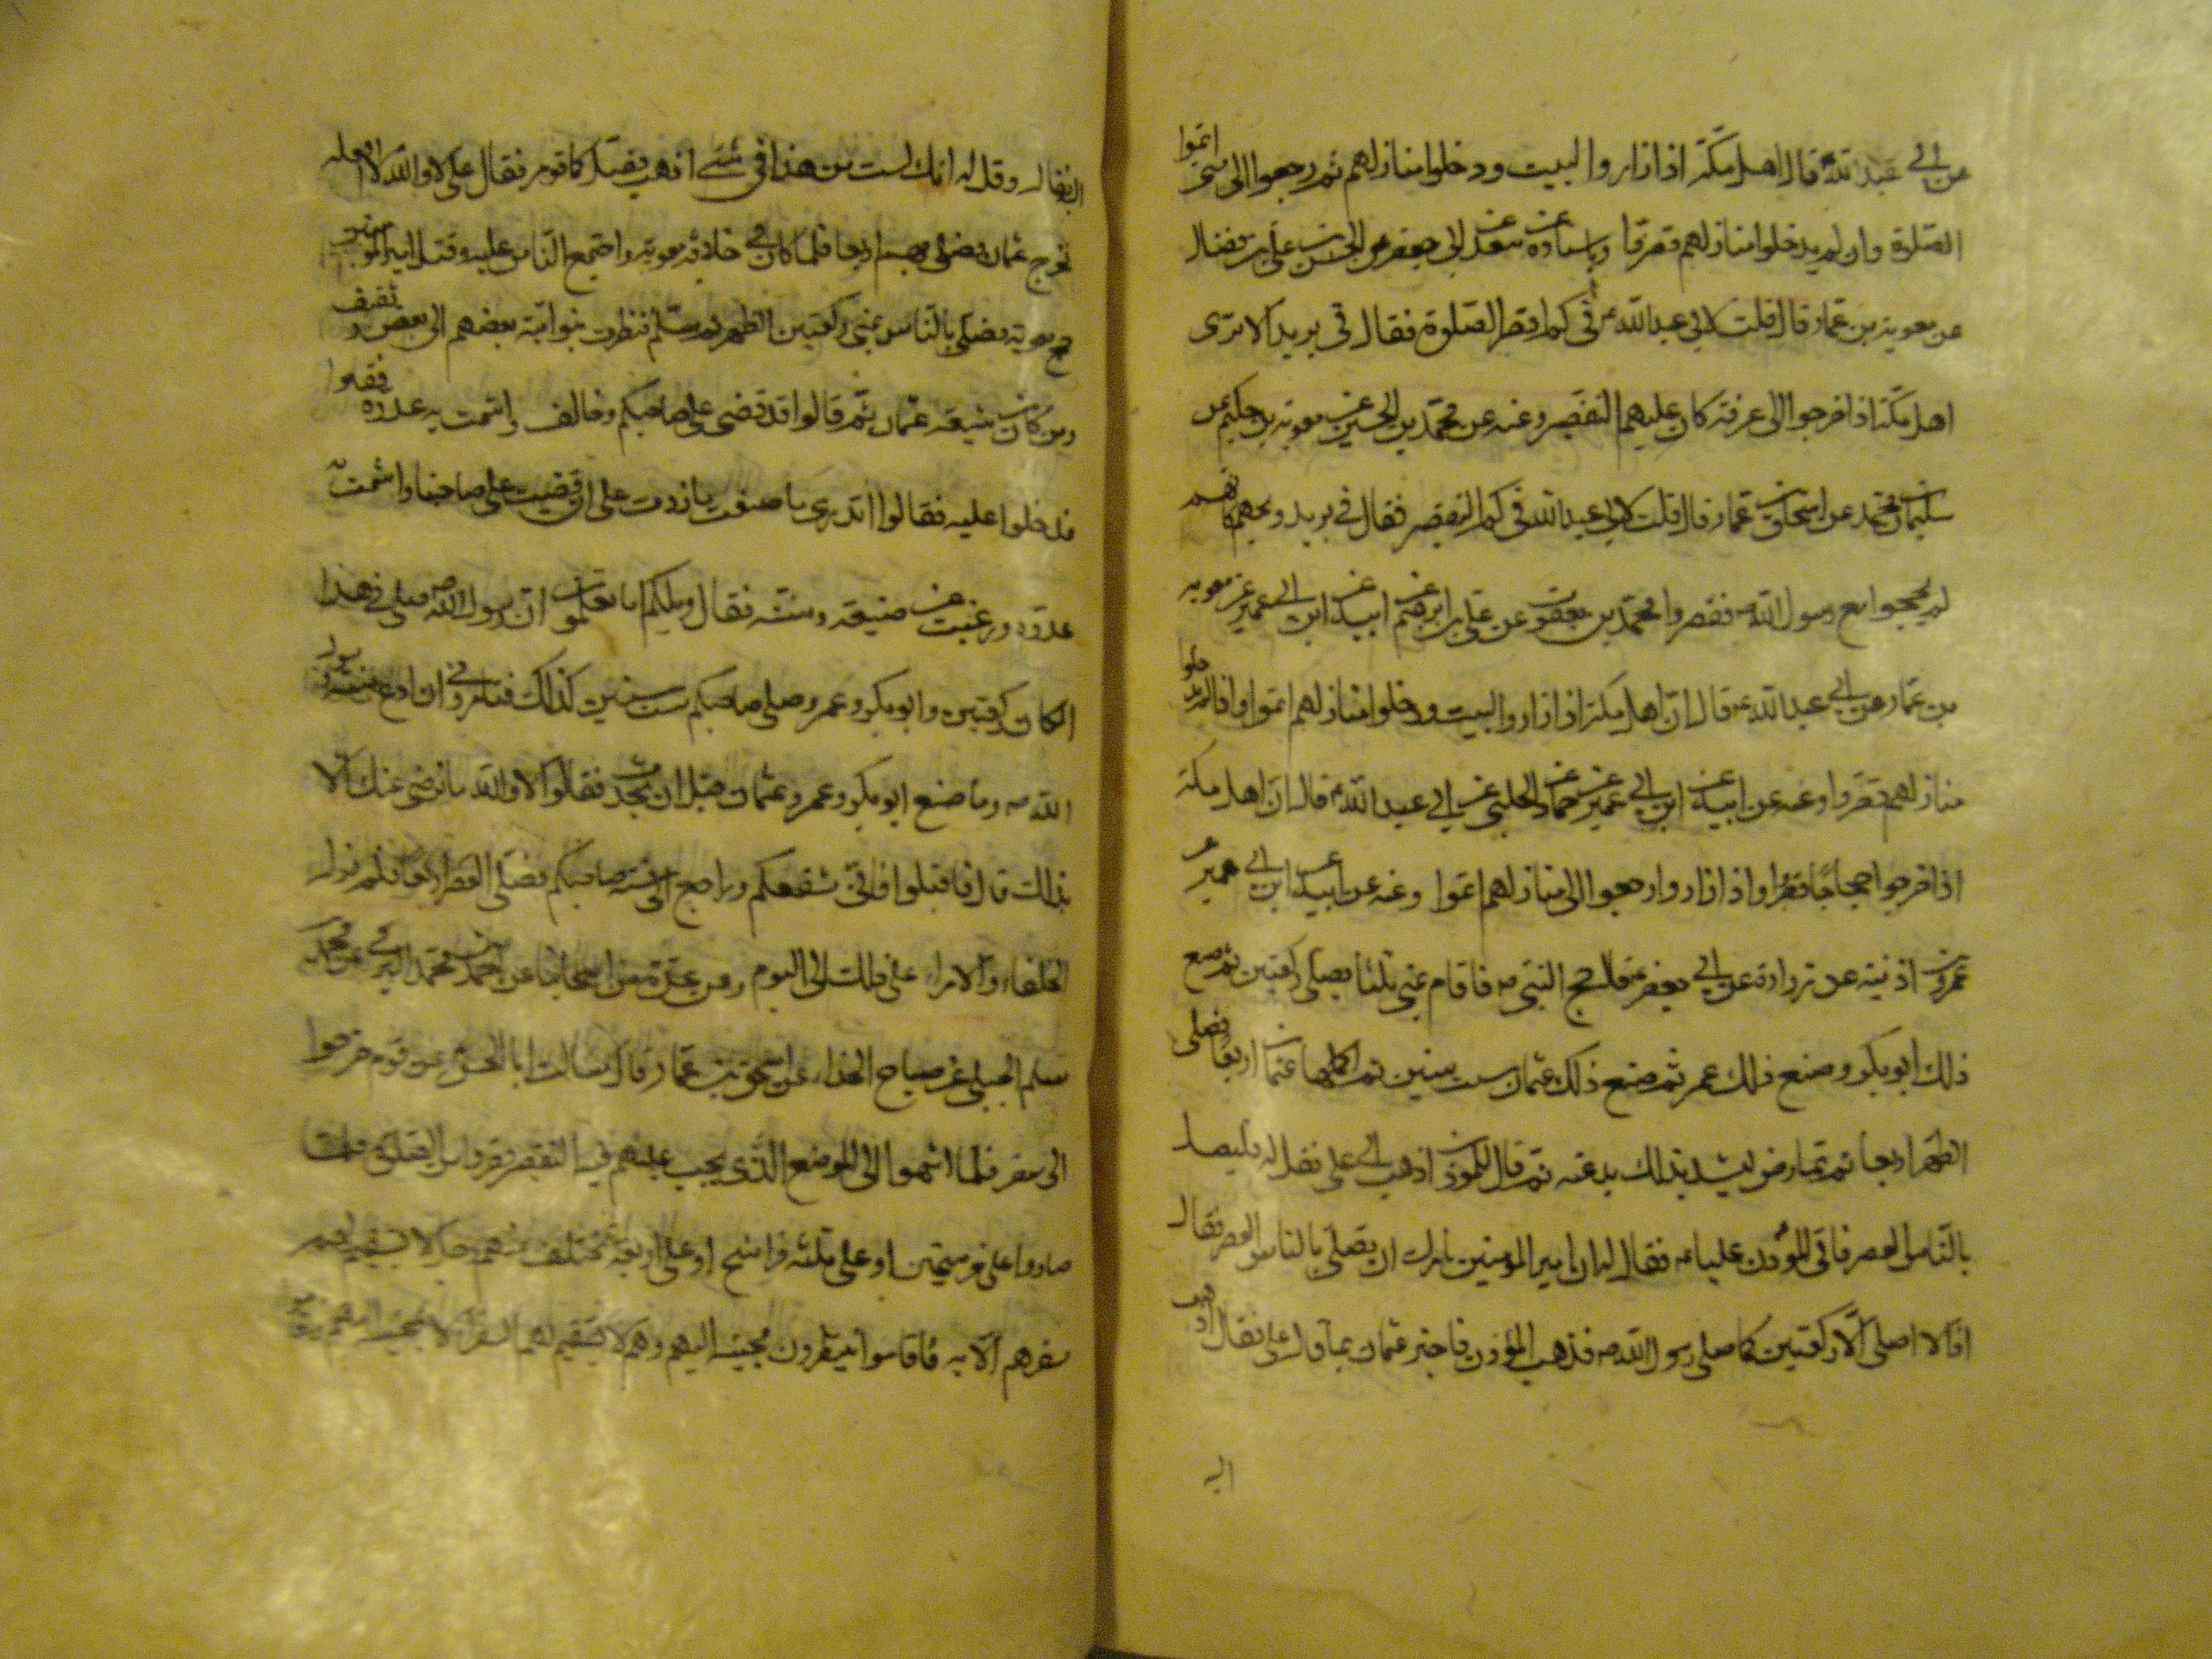 عن ابي عبد الله قال اهل مكة اذا زاروا البيت ودخلوا منازلهم ثم رجعوا الى منى اتموا
الصلوة وان لم يدخلوا منازلهم قصروا وباسناده عن سعد عن ابي جعفر عن الحسن بن علي بن فضال
عن معوية بن عمار قال قلت لابي عبد الله ع في كم اقصر الصلوة فقال في بريد الا ترى
اهل مكة اذا خرجوا الى عرفة كان عليهم التقصير وعنه عن محمد بن الحسين عن معوية بن حكيم عن
سليمان بن محمد عن اسحاق بن عمار قال قلت لابي عبد الله في كم التقصير فقال في بريد ويحهم كانهم
لم يحجوا مع رسول الله ص فقصروا محمد بن يعقوب عن علي بن ابرهيم عن ابيه عن ابن ابي عمير عن معوية
بن عمار عن ابي عبد الله ع قال ان اهل مكة اذا زاروا البيت ودخلوا منازلهم اتموا واذا لم يدخلوا
منازلهم قصروا وعنه عن ابيه عن ابن ابي عمير عن حماد عن الحلبي عن ابي عبد الله ع قال ان اهل مكة
اذا خرجوا حجاجا قصروا واذا زاروا ورجعوا الى منازلهم اتموا وعنه عن ابيه عن ابن ابي عمير عن
عمر بن اذينة عن زرارة عن ابي جعفر ع قال حج النبي ص فاقام بمنى ثلثا يصلي ركعتين ثم صنع
ذلك ابو بكر وصنع ذلك عمر ثم صنع ذلك عثمان ست سنين ثم اكملها عثمان اربعا فصلى
الظهر اربعا ثم تمارض ليشد بذلك بدعته ثم قال للمؤذن اذهب الى علي فقل له فليصل
بالناس العصر فاتى المؤذن عليا ع فقال له ان امير المؤمنين يامرك ان تصلي بالناس العصر فقال
اذا لا اصلي الا ركعتين كما صلى رسول الله ص فذهب المؤذن فاخبر عثمان بما قال علي فقال اذهب
اليه
اليه فقال وقل له انك لست من هذا في شئ اذهب فصل كما تؤمر فقال علي لا والله لا افعل
فخرج عثمان فصلى بهم اربعا فلما كان في خلافة معوية واجتمع الناس عليه وقتل امير المؤمنين
حج معوية فصلى بالناس بمنى ركعتين الظهر ثم سلم فنظرت بنو امية بعضهم الى بعض وثقيف
ومن كان من شيعة عثمان ثم قالوا قد قضى على صاحبكم وخالف واشمت به عدوه فقوموا
فدخلوا عليه فقالوا اتدري ما صنعت ما زدت على ان قضيت على صاحبنا واشمت به
عدوه ورغبت عن صنيعه وسنته فقال ويلكم اما تعلمون ان رسول الله ص صلى في هذا
المكان ركعتين وابو بكر وعمر وصلى صاحبكم ست سنين كذلك فتامروني ان ادع سنة رسول
الله ص وما صنع ابو بكر وعمر وعثمان قبل ان يحدث فقالوا لا والله ما نرضى عنك الا
بذلك قال فاقبلوا فاني متبعكم وراجع الى سنة صاحبكم فصلى العصر اربعا فلم يزل
الخلفاء والامراء على ذلك الى اليوم وعن عدة من اصحابنا عن احمد بن محمد البرقي عن محمد بن
سلم الجبلي عن صباح الحذاء عن اسحق بن عمار قال سالت ابا الحسن ع عن قوم خرجوا
الى سفر فلما انتهوا الى الموضع الذي يجب عليهم فيه التقصير قصروا من الصلوة فلما
صاروا على فرسخين او على ثلثة فراسخ او على اربعة تخلف عنهم رجل لا يستقيم لهم
سفرهم الا به فاقاموا ينتظرون مجيئه اليهم وهم لا يستقيم لهم السفر الا بمجيئه اليهم